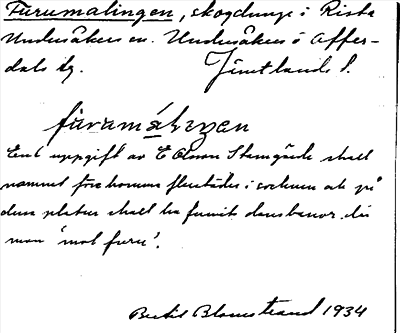 Furumalingen, skogdunge i Rista
Undersåkers sn. Undersåkers o Offer-
dals tg. Jämtlands l.
furamá̄lıŋen
Enl. uppgift av E Olsson Stamgärde skall
namnet förekomma flerstädes i socknen och på
dessa platser skall ha funnits dansbanor. där
man 'mol furu'.
Bertil Blomstrand 1934